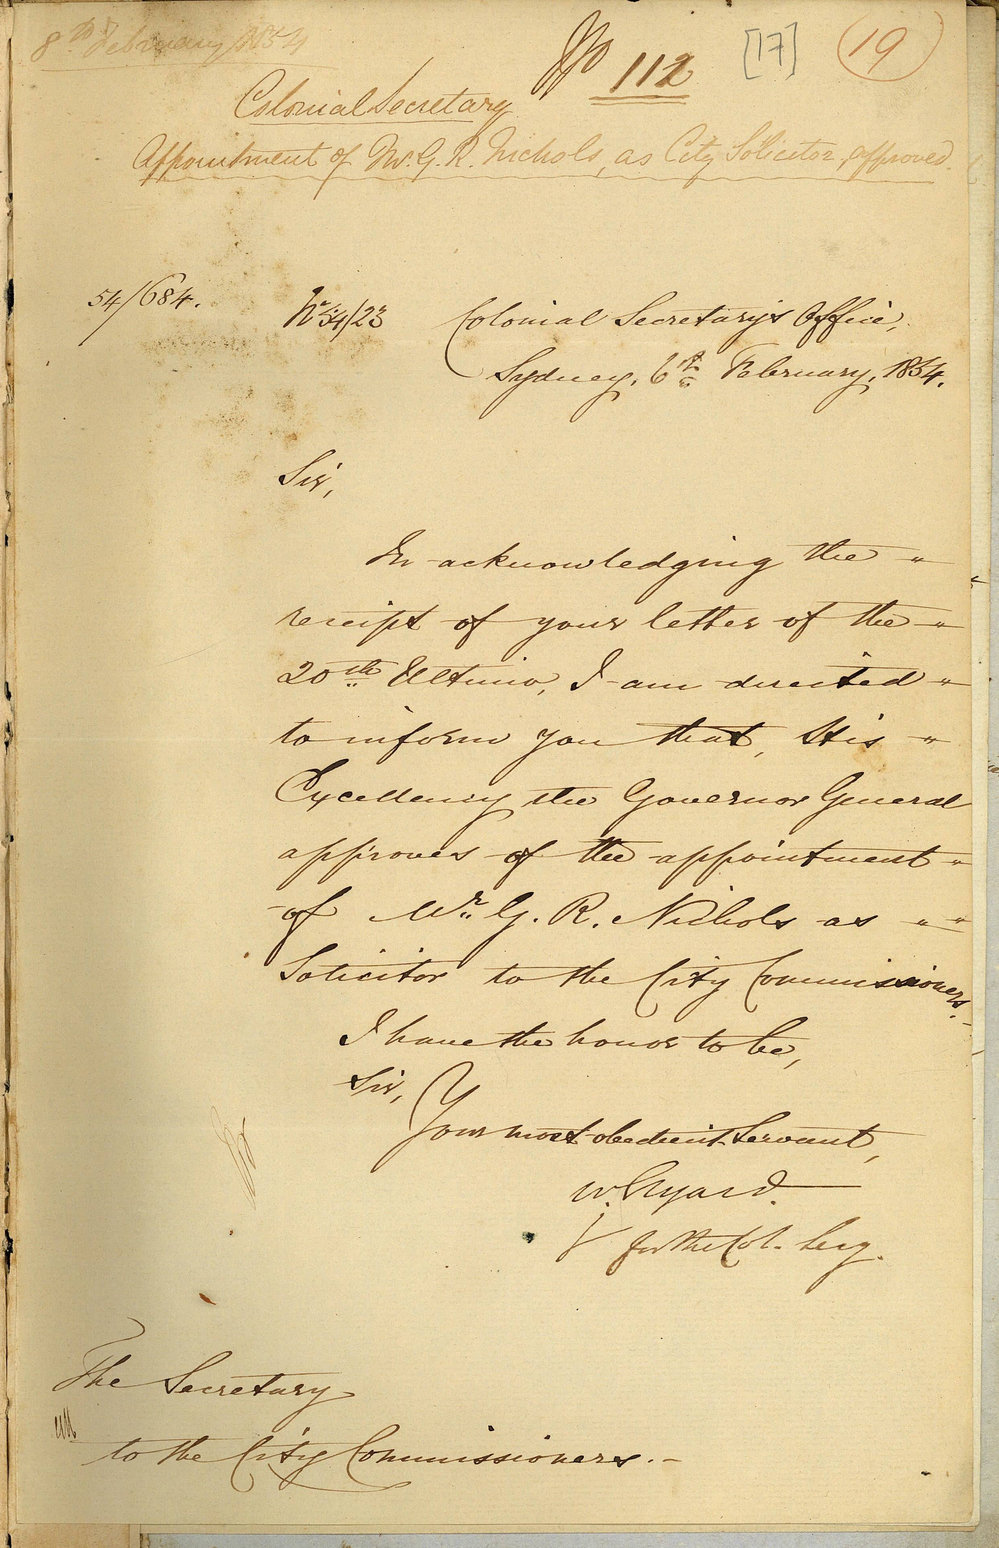 8th February 1854
No 112 [17] 19
Colonial Secretary
Appointment of Mr. G. R. Nichols, as City Solicitor, approved.
54/684.
No 54/23 Colonial Secretary's Office,
Sydney, 6th February, 1854.
Sir,
In acknowledging the "
receipt of your letter of the "
20th Ultimo, I am directed "
to inform you that, His "
Excellency the Governor General
approves of the appointment "
of Mr. G. R. Nichols as " "
Solicitor to the City Commissioners.
I have the honor to be,
Sir,
Your most obedient Servant,
W. Elyard.
for the Col. Secy.
The Secretary
to the City Commissioners. -